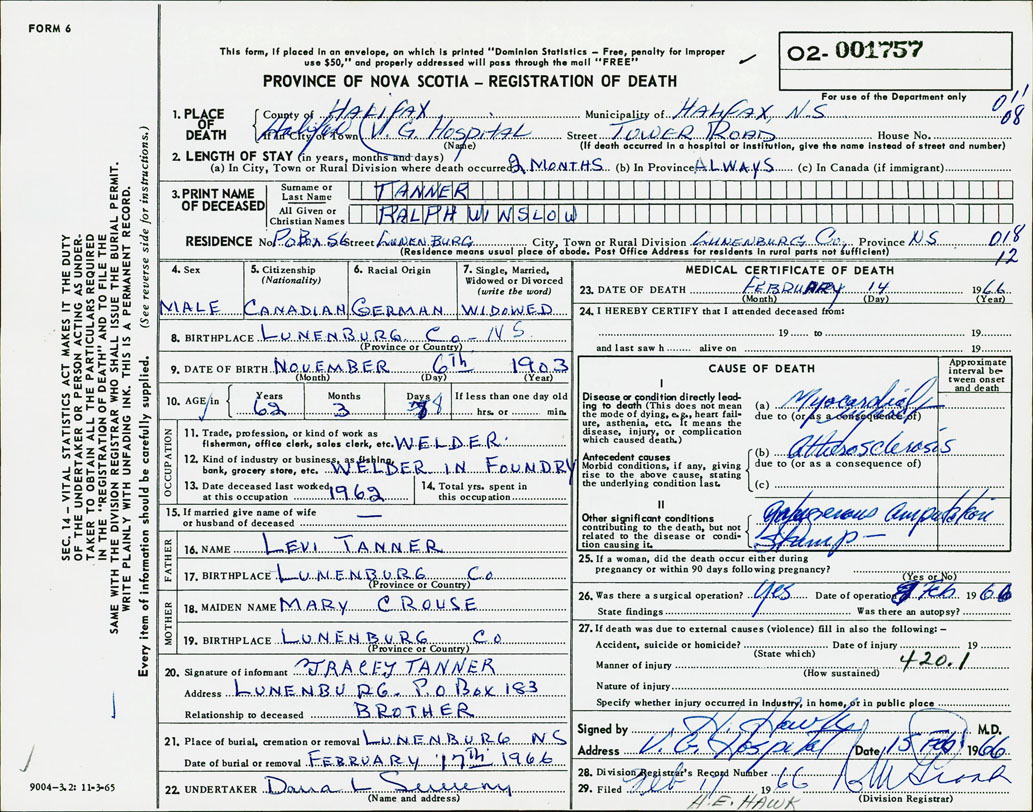 FORM 6
This form, if placed in an envelope, on which is printed "Dominion Statistics – Free, penalty for improper
use $50," and properly addressed will pass through the mail "FREE"
O2- 001757
PROVINCE OF NOVA SCOTIA – REGISTRATION OF DEATH
For use of the Department only
011
08
1. PLACE OF DEATH County of HALIFAX Municipality of HALIFAX, N.S
If in City or Town Halifax (V. G. HOSPITAL Street TOWER ROAD House No.
(Name) (If death occurred in a hospital or institution, give the name instead of street and number)
2. LENGTH OF STAY (in years, months and days)
(a) In City, Town or Rural Division where death occurred 2 MONTHS (b) In Province ALWAYS (c) In Canada (if immigrant)
3. PRINT NAME OF DECEASED Surname or Last Name TANNER
All Given or Christian Names RALPH WINSLOW
RESIDENCE No. P.O BOX 56 Street LUNENBURG City, Town or Rural Division LUNENBURG CO, Province NS 018
(Residence means usual place of abode. Post Office Address for residents in rural parts not sufficient) 12
4. Sex MALE
5. Citizenship (Nationality) CANADIAN
6. Racial Origin GERMAN
7. Single, Married, Widowed or Divorced (write the word) WIDOWED
8. BIRTHPLACE LUNENBURG CO - NS
(Province or Country)
9. DATE OF BIRTH NOVEMBER 6th 1903
(Month) (Day) (Year)
10. AGE in Years 62 Months 3 Days 8 If less than one day old hrs. or min.
OCCUPATION
11. Trade, profession, or kind of work as
fisherman, office clerk, sales clerk, etc. WELDER.
12. Kind of industry or business, as fishing,
bank, grocery store, etc. WELDER IN FOUNDRY
13. Date deceased last worked at this occupation 1962
14. Total yrs. spent in this occupation
15. If married give name of wife
or husband of deceased —
FATHER
16. NAME LEVI TANNER
17. BIRTHPLACE LUNENBURG CO
(Province or Country)
MOTHER
18. MAIDEN NAME MARY CROUSE
19. BIRTHPLACE LUNENBURG CO
(Province or Country)
20. Signature of informant TRACEY TANNER
Address LUNENBURG. P.O BOX 183
Relationship to deceased BROTHER
21. Place of burial, cremation or removal LUNENBURG NS
Date of burial or removal FEBRUARY 17th 1966
22. UNDERTAKER Dana L
(Name and address)
MEDICAL CERTIFICATE OF DEATH
23. DATE OF DEATH FEBRUARY 14 1966
(Month) (Day) (Year)
24. I HEREBY CERTIFY that I attended deceased from:
19 to 19
and last saw h alive on 19
CAUSE OF DEATH
Approximate interval between onset and death
I
Disease or condition directly leading to death (This does not mean the mode of dying, e.g., heart failure, asthenia, etc. It means the disease, injury, or complication which caused death.)
(a) Myocardial
due to (or as a consequence of)
Antecedent causes
Morbid conditions, if any, giving rise to the above cause, stating the underlying condition last.
(b) atherosclerosis
due to (or as a consequence of)
(c)
II
Other significant conditions contributing to the death, but not related to the disease or condition causing it.
gangrenous amputation
Stump –
25. If a woman, did the death occur either during
pregnancy or within 90 days following pregnancy?
(Yes or No)
26. Was there a surgical operation? Yes Date of operation Feb 1966
State findings Was there an autopsy?
27. If death was due to external causes (violence) fill in also the following: –
Accident, suicide or homicide? Date of injury 19
(State which)
Manner of injury 420.1
(How sustained)
Nature of injury
Specify whether injury occurred in industry, in home, or in public place
Signed by H. Hawk M.D.
Address V. G. Hospital Date 15 Feb 1966
28. Division Registrar's Record Number
29. Filed Feb 1966
(Division Registrar)
H.E. HAWK
SEC. 14 – VITAL STATISTICS ACT MAKES IT THE DUTY
OF THE UNDERTAKER OR PERSON ACTING AS UNDER-
TAKER TO OBTAIN ALL THE PARTICULARS REQUIRED
IN THE "REGISTRATION OF DEATH" AND TO FILE THE
SAME WITH THE DIVISION REGISTRAR WHO SHALL ISSUE THE BURIAL PERMIT.
WRITE PLAINLY WITH UNFADING INK. THIS IS A PERMANENT RECORD.
Every item of information should be carefully supplied. (See reverse side for instructions.)
9004-3.2: 11-3-65